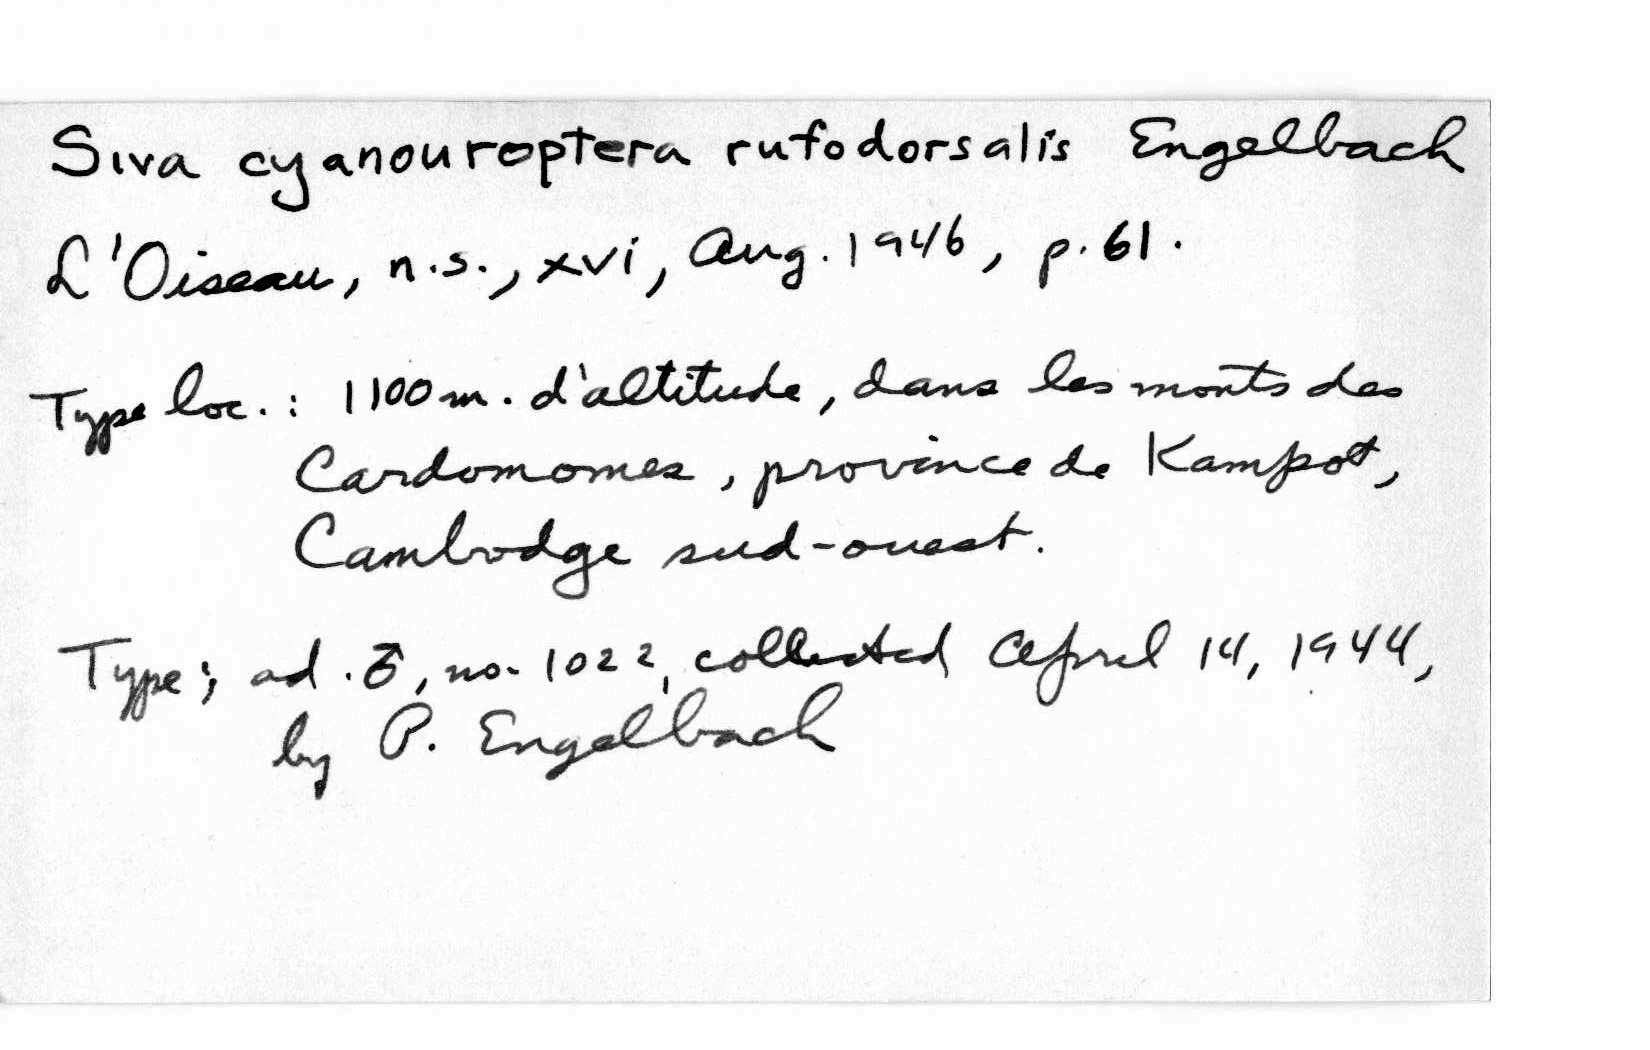 Siva cyanouroptera rufodorsalis Engelbach
L'Oiseau, n.s., xvi, Aug. 1946, p. 61.
Type loc.: 1100 m. d'altitude, dans les monts des
Cardomomes, province de Kampot,
Cambodge sud-ouest.
Type; ad. ♂, no. 1022, collected April 14, 1944,
by P. Engelbach